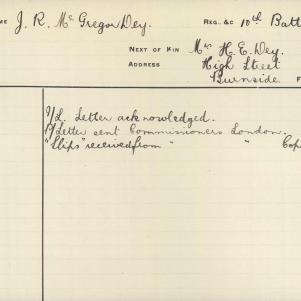 ME J. R. McGregor Dey. REG. &C 10th Batt
NEXT OF KIN Mrs H. E. Dey.
ADDRESS High Street
Burnside F
I/L. Letter acknowledged.
Letter sent Commissioners London.
"Slips" received from " " Cop